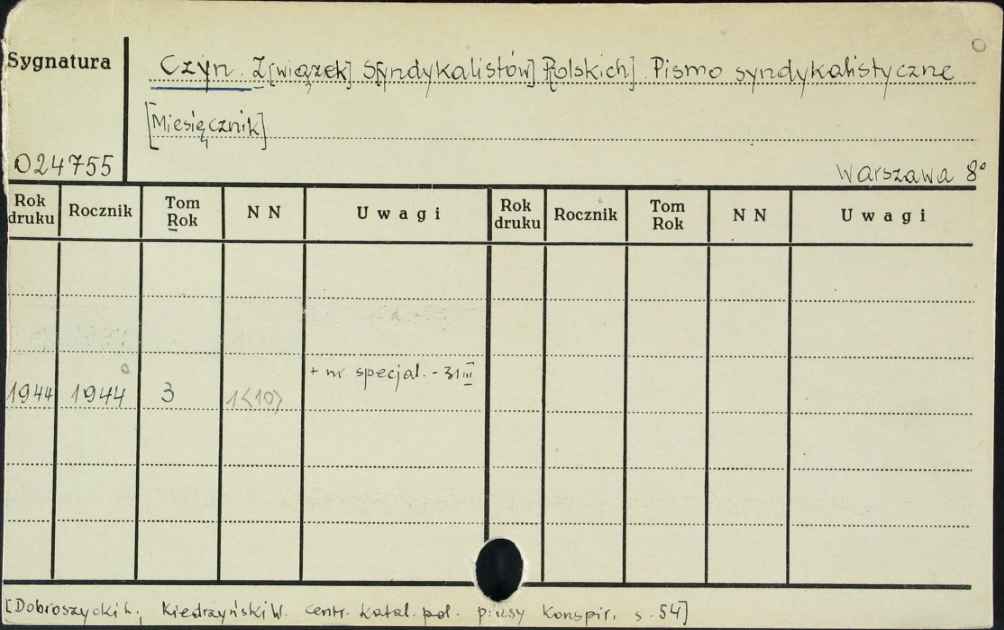 Sygnatura
Czyn. Z[wiązek] S[yndykalistów] P[olskich]. Pismo syndykalistyczne
[Miesięcznik]
024755
Warszawa 8°
Rok druku Rocznik Tom Rok N N Uwagi Rok druku Rocznik Tom Rok N N Uwagi
+ nr specjal. - 31 III
1944 1944 3 1<10>
[Dobroszycki L., Kiedrzyński W. Centr. katal. pol. prasy konspir. s. 54]